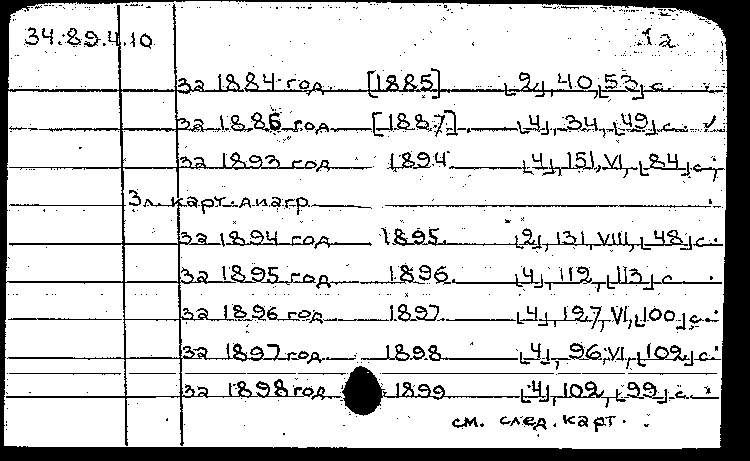 34.89.4.10 1а
за 1884 год [1885]. [2], 40, [53] с.
за 1886 год [1887]. [4], 34, [49] с.
за 1893 год 1894. [4], 151, VI, [84] с.,
3 л. карт.-диагр.
за 1894 год 1895. [2], 131, VIII, [48] с.
за 1895 год 1896. [4], 112, [113] с.
за 1896 год 1897. [4], 127, VI, [100] с.
за 1897 год 1898. [4], 96, VI, [102] с.
за 1898 год 1899. [4], 102, [99] с.
см. след. карт.